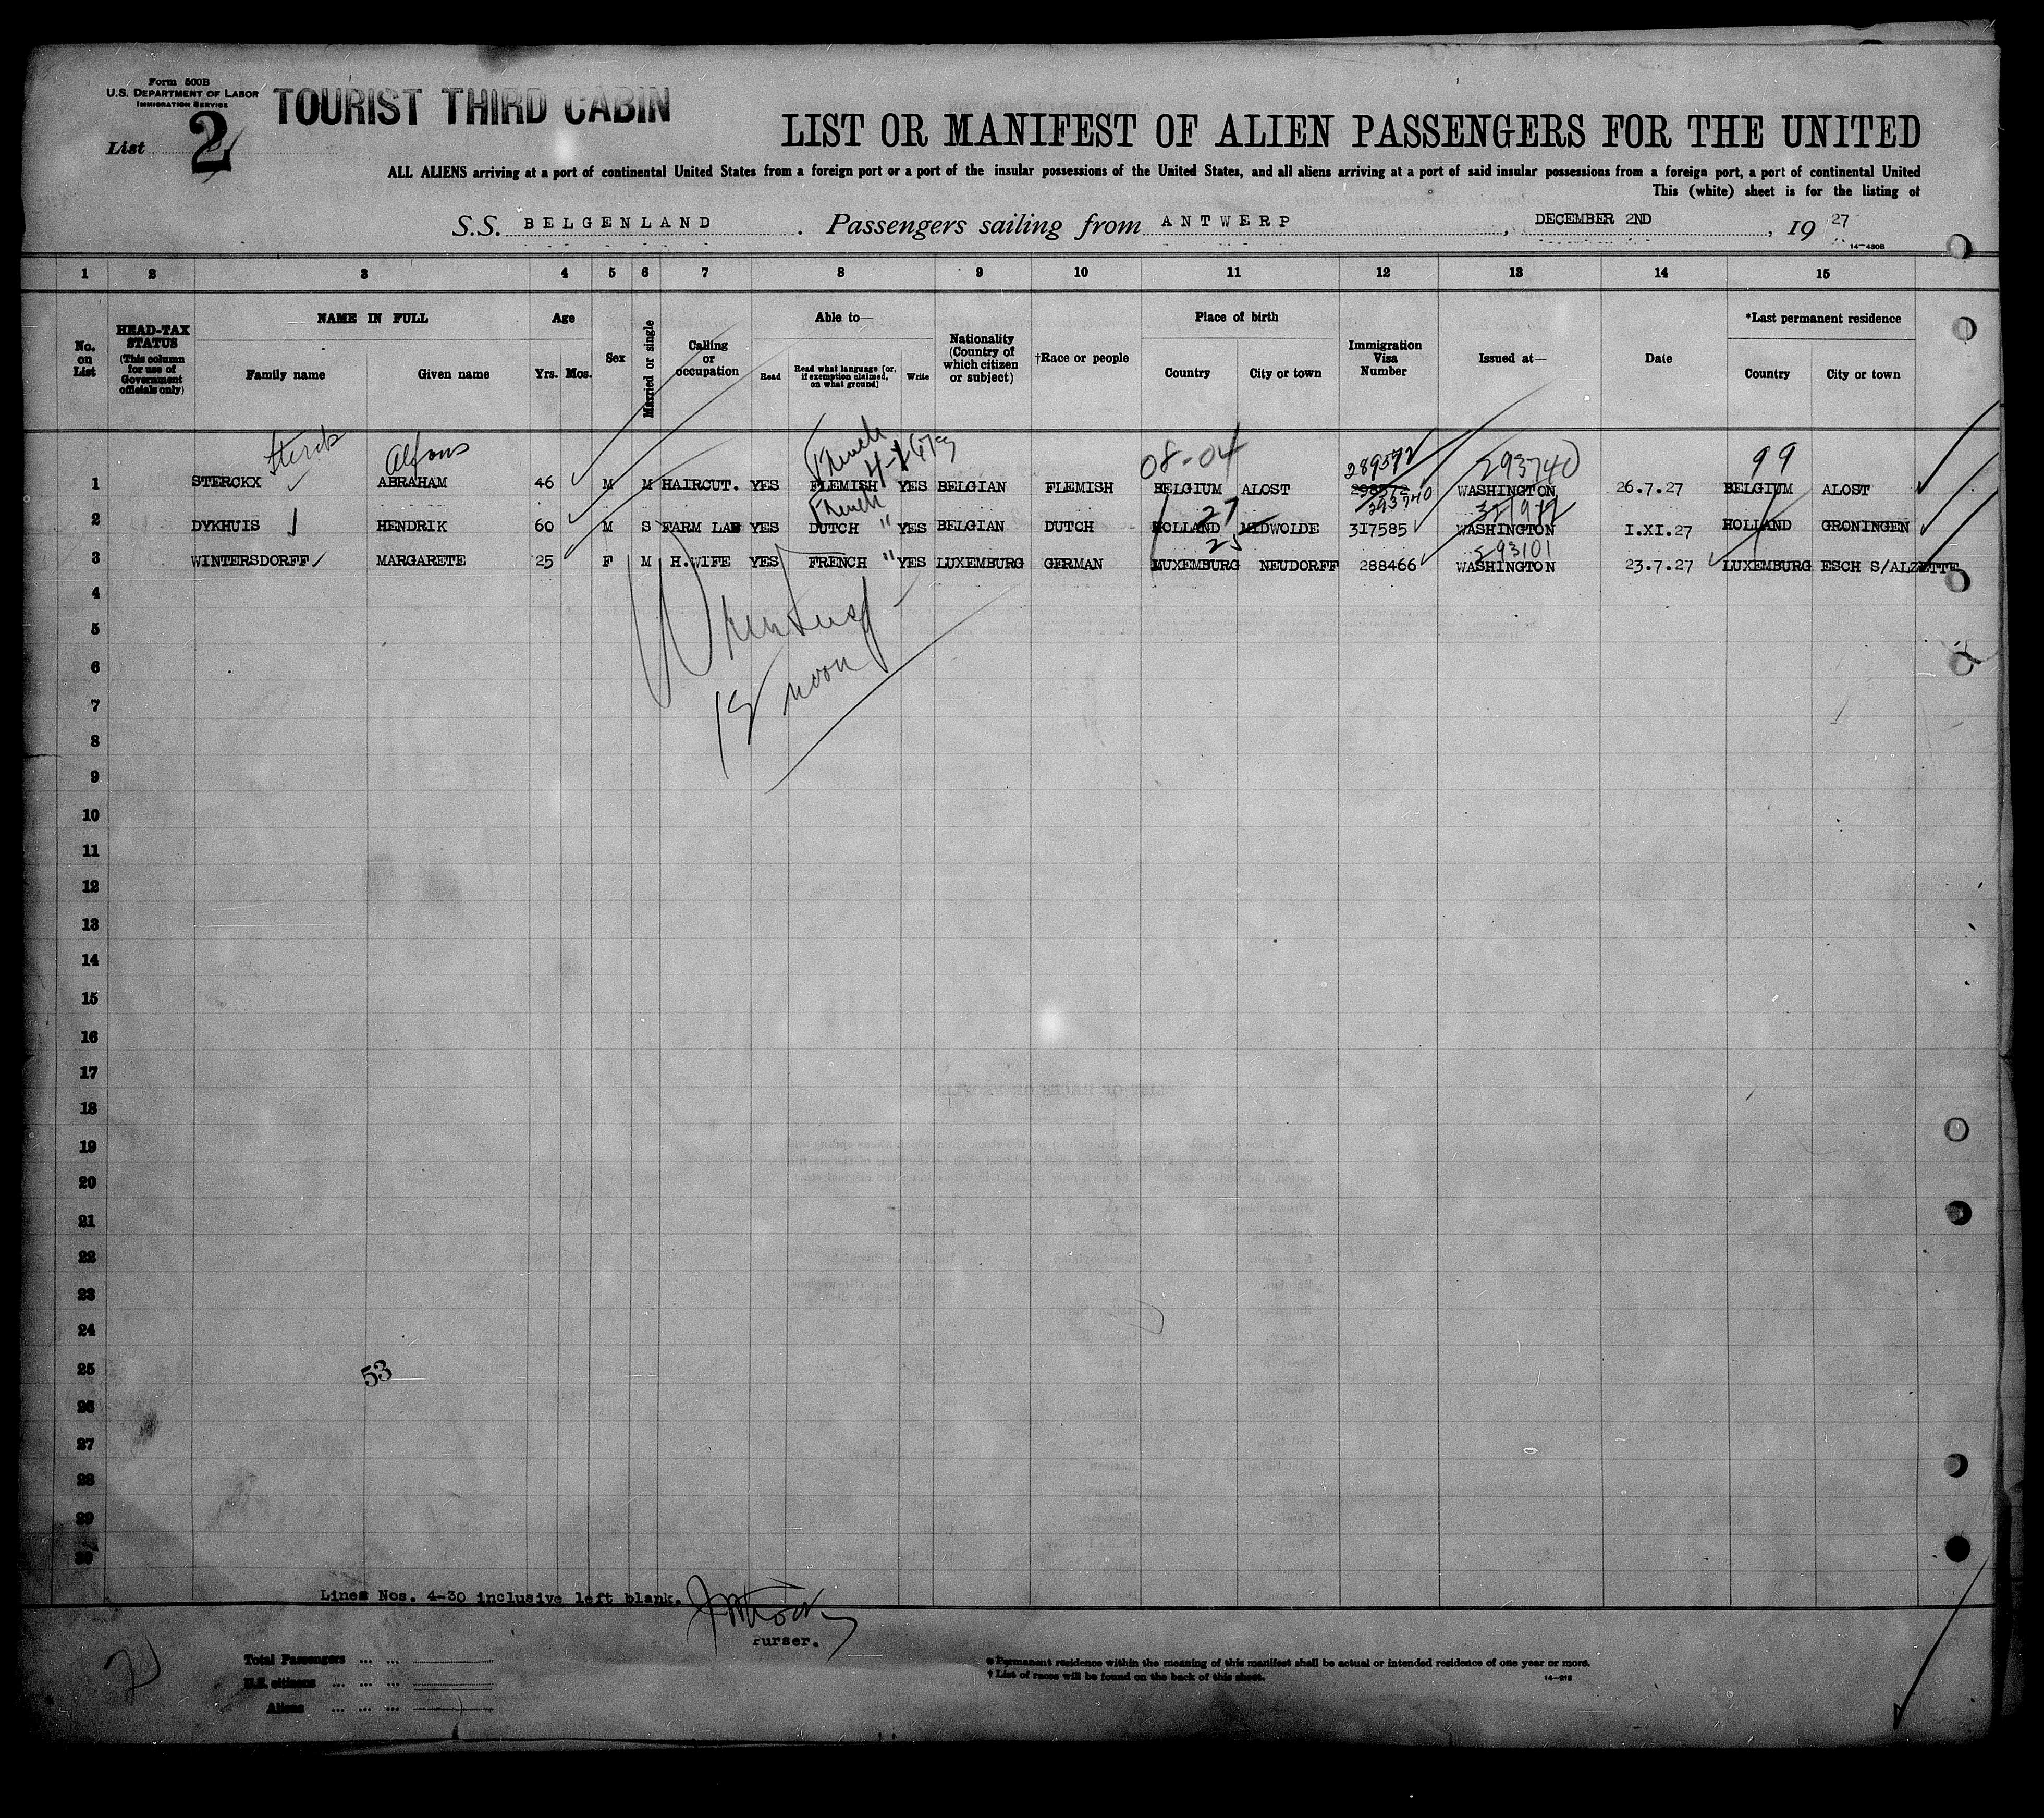 Form 500B
U.S. DEPARTMENT OF LABOR
IMMIGRATION SERVICE
TOURIST THIRD CABIN
List 2
LIST OR MANIFEST OF ALIEN PASSENGERS FOR THE UNITED
ALL ALIENS arriving at a port of continental United States from a foreign port or a port of the insular possessions of the United States, and all aliens arriving at a port of said insular possessions from a foreign port, a port of continental United
This (white) sheet is for the listing of
S.S. BELGENLAND. Passengers sailing from ANTWERP, DECEMBER 2ND, 19 27
14-430B
1 2 3 4 5 6 7 8 9 10 11 12 13 14 15
No. on List
HEAD-TAX STATUS (This column for use of Government officials only)
NAME IN FULL
Family name Given name
Age
Yrs. Mos.
Sex
Married or single
Calling or occupation
Able to—
Read Read what language [or, if exemption claimed, on what ground] Write
Nationality (Country of which citizen or subject)
†Race or people
Place of birth
Country City or town
Immigration Visa Number
Issued at—
Date
*Last permanent residence
Country City or town
Sterck Alfons French 08-04 289572 293740 99
1 STERCKX ABRAHAM 46 M M HAIRCUT. YES FLEMISH YES BELGIAN FLEMISH BELGIUM ALOST 298572 WASHINGTON 26.7.27 BELGIUM ALOST
French 27 293740
2 DYKHUIS HENDRIK 60 M S FARM LAB YES DUTCH " YES BELGIAN DUTCH HOLLAND MIDWOLDE 317585 WASHINGTON I.XI.27 HOLLAND GRONINGEN
25 293101
3 WINTERSDORFF MARGARETE 25 F M H.WIFE YES FRENCH " YES LUXEMBURG GERMAN LUXEMBURG NEUDORFF 288466 WASHINGTON 23.7.27 LUXEMBURG ESCH S/ALZETTE
4
5
6
noon
7
8
9
10
11
12
13
14
15
16
17
18
19
20
21
22
23
24
25
53
26
27
28
29
30
Lines Nos. 4-30 inclusive left blank.
Purser.
2
Total Passengers ... ...
U.S. citizens ... ... ...
Aliens ... ... ...
* Permanent residence within the meaning of this manifest shall be actual or intended residence of one year or more.
† List of races will be found on the back of this sheet.
14-213